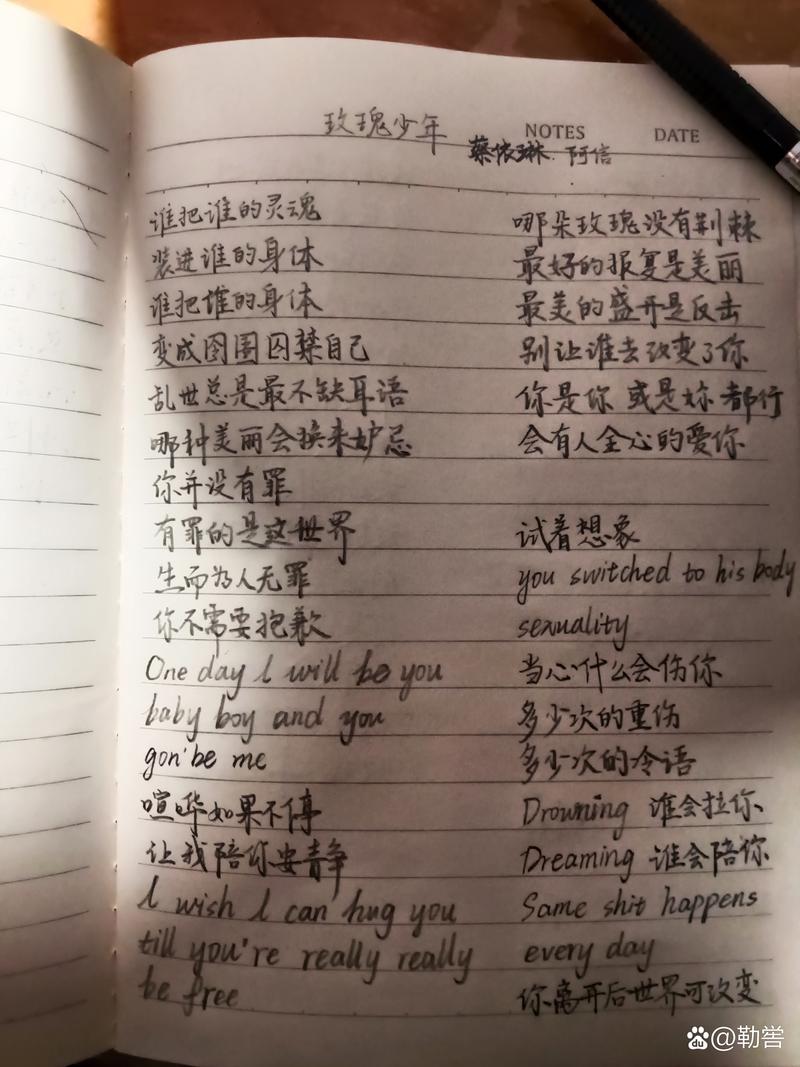 玫瑰少年
NOTES
DATE
蔡依琳 阿信
谁把谁的灵魂
装进谁的身体
谁把谁的身体
变成囹圄囚禁自己
乱世总是最不缺耳语
哪种美丽会换来妒忌
你并没有罪
有罪的是这世界
生而为人无罪
你不需要抱歉
One day l will be you
baby boy and you
gon'be me
喧哗如果不停
让我陪你安静
l wish l can hug you
till you're really really
be free
哪朵玫瑰没有荆棘
最好的报复是美丽
最美的盛开是反击
别让谁去改变了你
你是你 或是妳 都行
会有人全心的爱你
试着想象
you switched to his body
sexuality
当心什么会伤你
多少次的重伤
多少次的冷语
Drowning 谁会拉你
Dreaming 谁会陪你
Same shit happens
every day
你离开后世界可改变
Baidu@勒喾